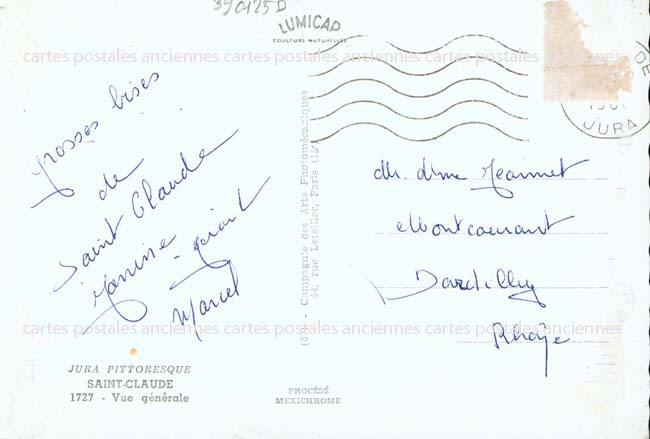 390125D
LUMICAP
COULEURS NATURELLES
cartes postales anciennes cartes postales anciennes cartes postales anciennes
grosses bises
de
Saint Claude
Janine
Marcel
JURA PITTORESQUE
SAINT-CLAUDE
1727 - Vue générale
- Compagnie des Arts Photomécaniques
44, rue Letellier, Paris (15
PROCÉDÉ
MEXICHROME
DE
JURA
Mr Mme Jeannet
Montcourant
Dardilly
Rhône
cartes postales anciennes cartes postales anciennes cartes postales anciennes